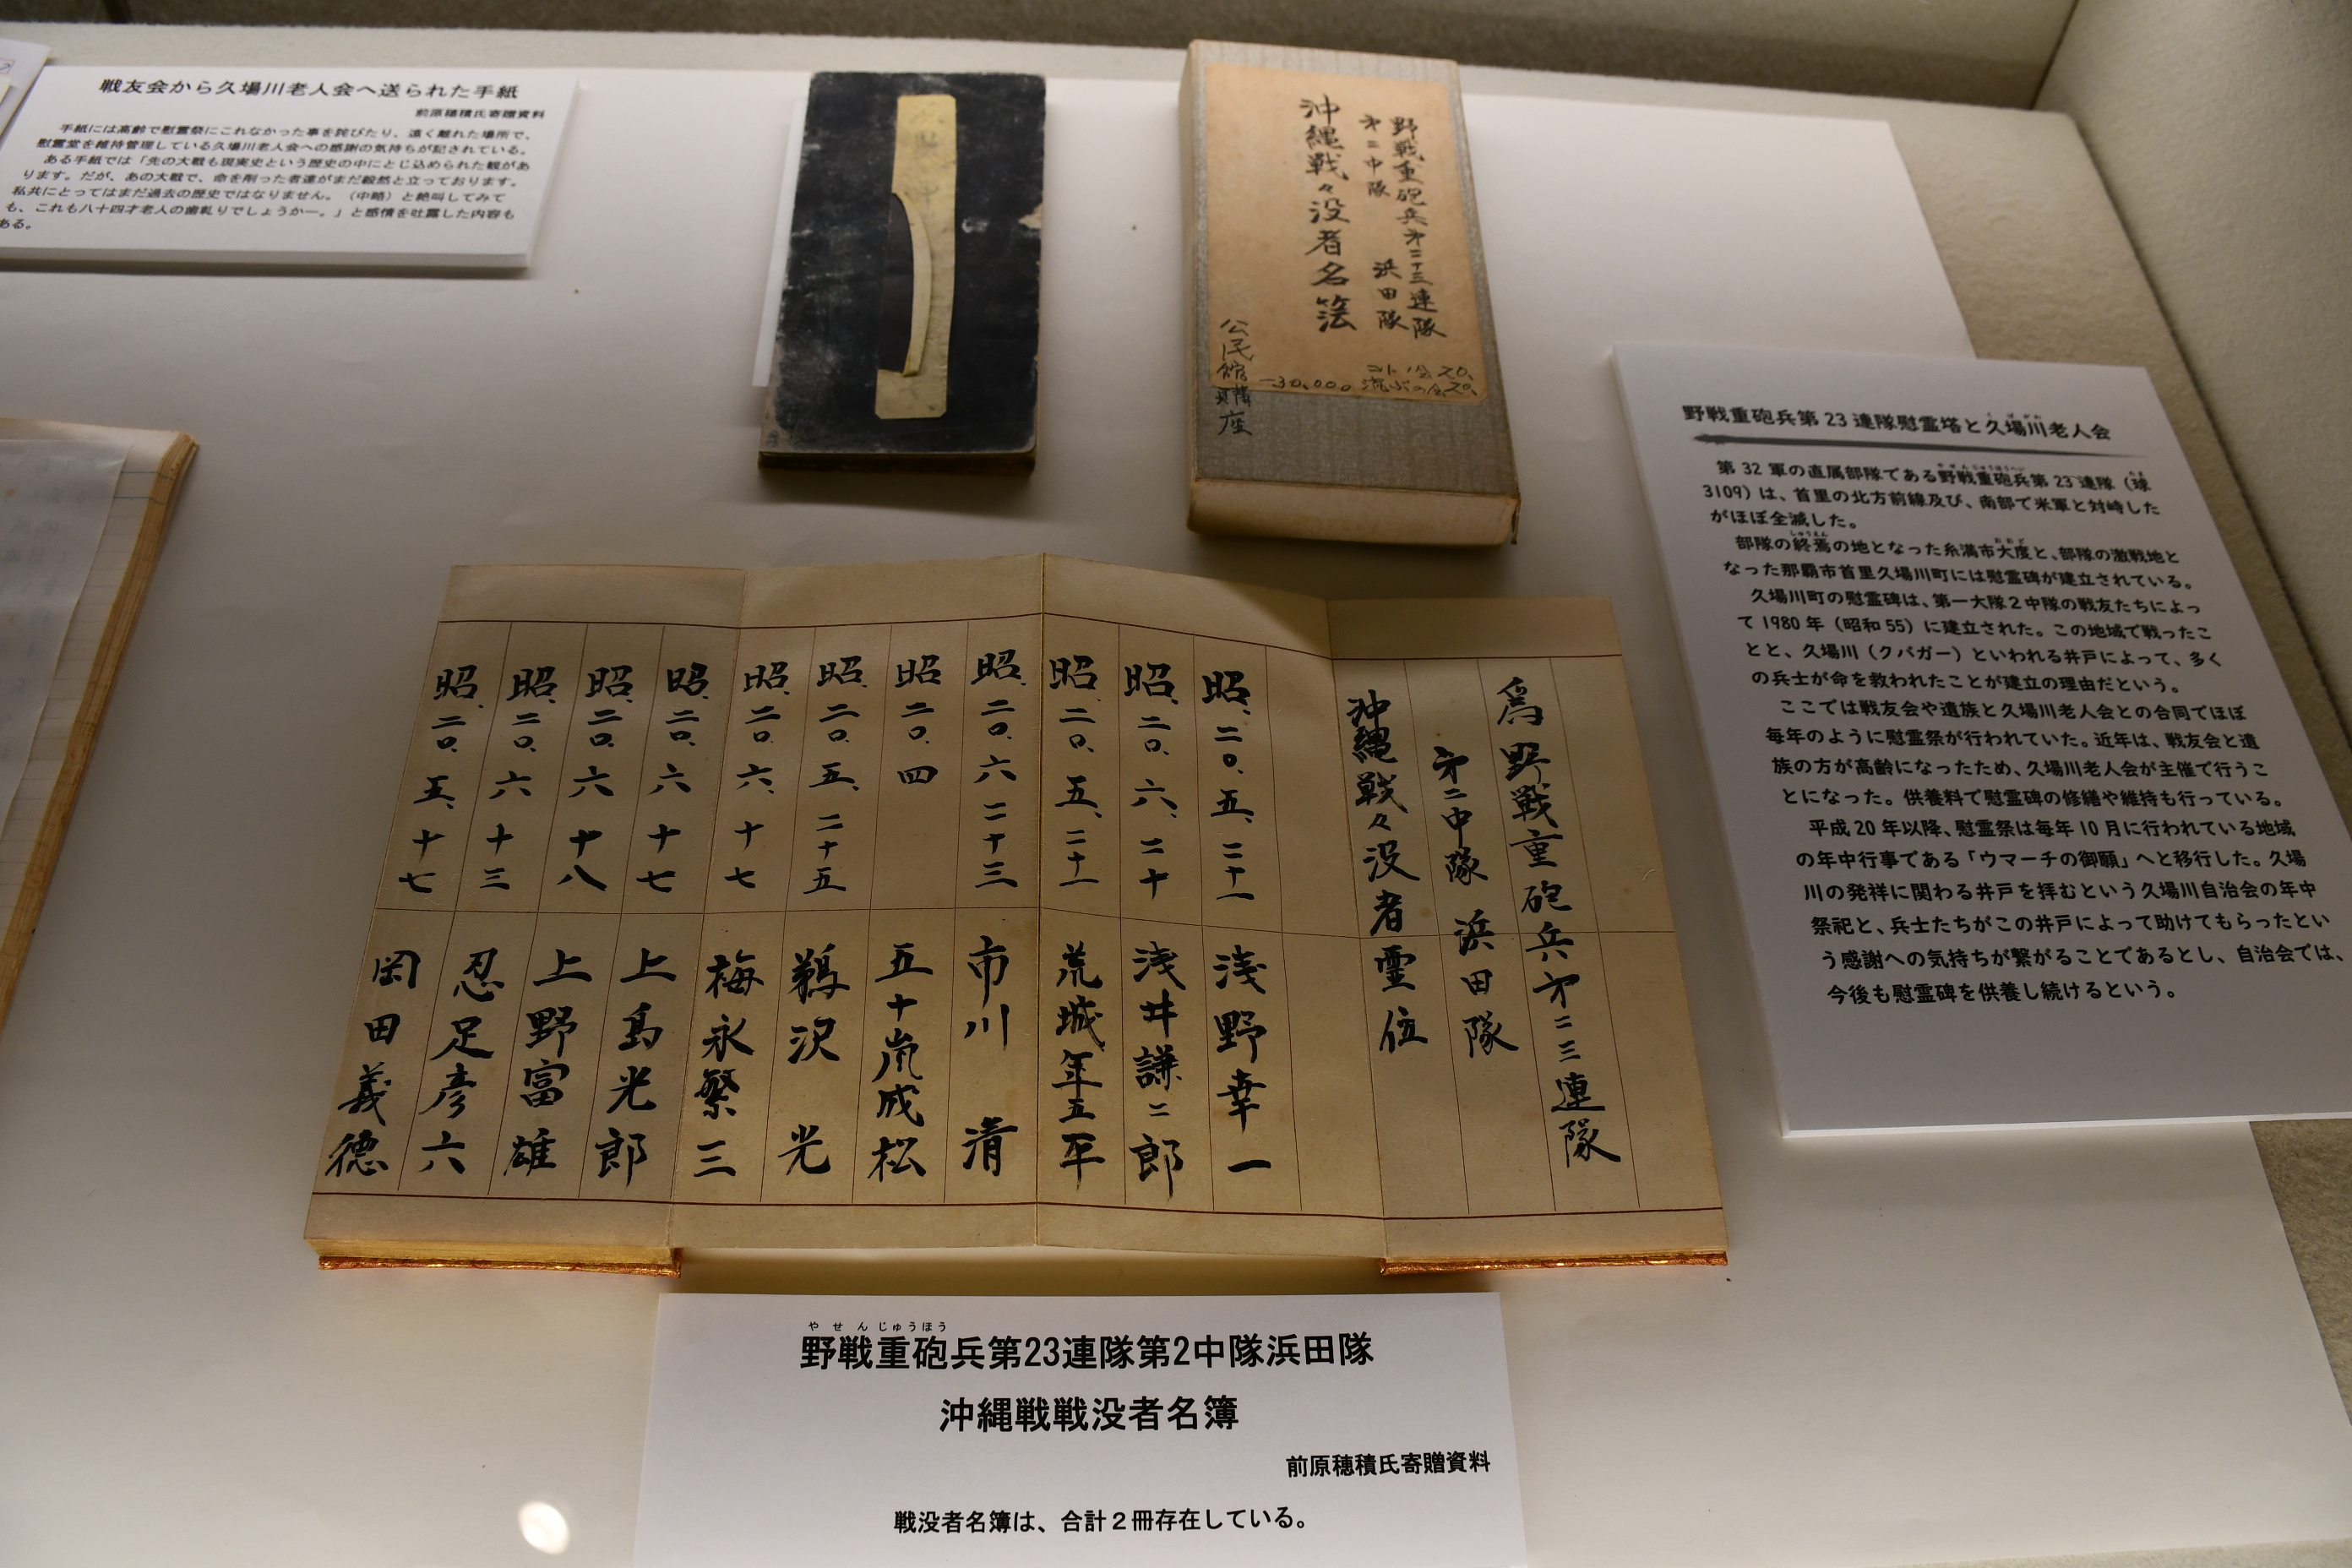 戦友会から久場川老人会へ送られた手紙
前原穂積氏寄贈資料
手紙には高齢で慰霊祭にこれなかった事を詫びたり、遠く離れた場所で、
慰霊堂を維持管理している久場川老人会への感謝の気持ちが記されている。
ある手紙では「先の大戦も現実史という歴史の中にとじ込められた観があ
ります。だが、あの大戦で、命を削った者達がまだ毅然と立っております。
私共にとってはまだ過去の歴史ではなりません。（中略）と絶叫してみて
も、これも八十四才老人の歯軋りでしょうかー。」と感情を吐露した内容も
ある。
野戦重砲兵才二十三連隊
才二中隊 浜田隊
沖縄戦々没者名簿
公民館講座
野戦重砲兵第23連隊慰霊塔と久場川老人会
第32軍の直属部隊である野戦重砲兵第23連隊（球
3109）は、首里の北方前線及び、南部で米軍と対峙した
がほぼ全滅した。
部隊の終焉の地となった糸満市大度と、部隊の激戦地と
なった那覇市首里久場川町には慰霊碑が建立されている。
久場川町の慰霊碑は、第一大隊2中隊の戦友たちによっ
て1980年（昭和55）に建立された。この地域で戦ったこ
とと、久場川（クバガー）といわれる井戸によって、多く
の兵士が命を救われたことが建立の理由だという。
ここでは戦友会や遺族と久場川老人会との合同でほぼ
毎年のように慰霊祭が行われていた。近年は、戦友会と遺
族の方が高齢になったため、久場川老人会が主催で行うこ
とになった。供養料で慰霊碑の修繕や維持も行っている。
平成20年以降、慰霊祭は毎年10月に行われている地域
の年中行事である「ウマーチの御願」へと移行した。久場
川の発祥に関わる井戸を拝むという久場川自治会の年中
祭祀と、兵士たちがこの井戸によって助けてもらったとい
う感謝への気持ちが繋がることであるとし、自治会では、
今後も慰霊碑を供養し続けるという。
為野戦重砲兵才二三連隊
才二中隊 浜田隊
沖縄戦々没者霊位
昭、二〇、五、二十一 浅野幸一
昭、二〇、六、二十 浅井謙二郎
昭、二〇、五、二十一 荒城年五平
昭、二〇、六 二十三 市川 清
昭 二〇、四 五十嵐成松
昭、二〇、五、二十五 鵜沢 光
昭、二〇、六、十七 梅永繁三
昭、二〇、六 十七 上島光郎
昭、二〇、六 十八 上野富雄
昭、二〇、六 十三 忍足彦六
昭、二〇、五、十七 岡田義徳
やせんじゅうほう
野戦重砲兵第23連隊第2中隊浜田隊
沖縄戦戦没者名簿
前原穂積氏寄贈資料
戦没者名簿は、合計2冊存在している。